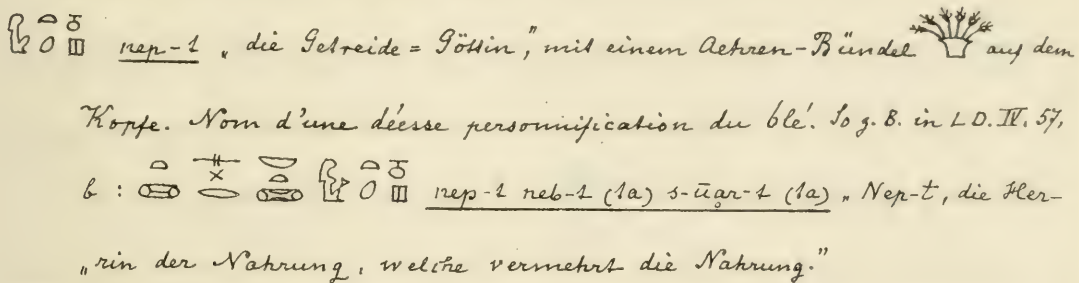 nep-t „die Getreide=Göttin,” mit einem Aehren-Bündel auf dem
Kopfe. Nom d'une déesse personnification du blé. So z. B. in LD. IV. 57,
b : nep-t neb-t (ta) s-ūar-t (ta) „Nep-t, die Her-
„rin der Nahrung, welche vermehrt die Nahrung.”